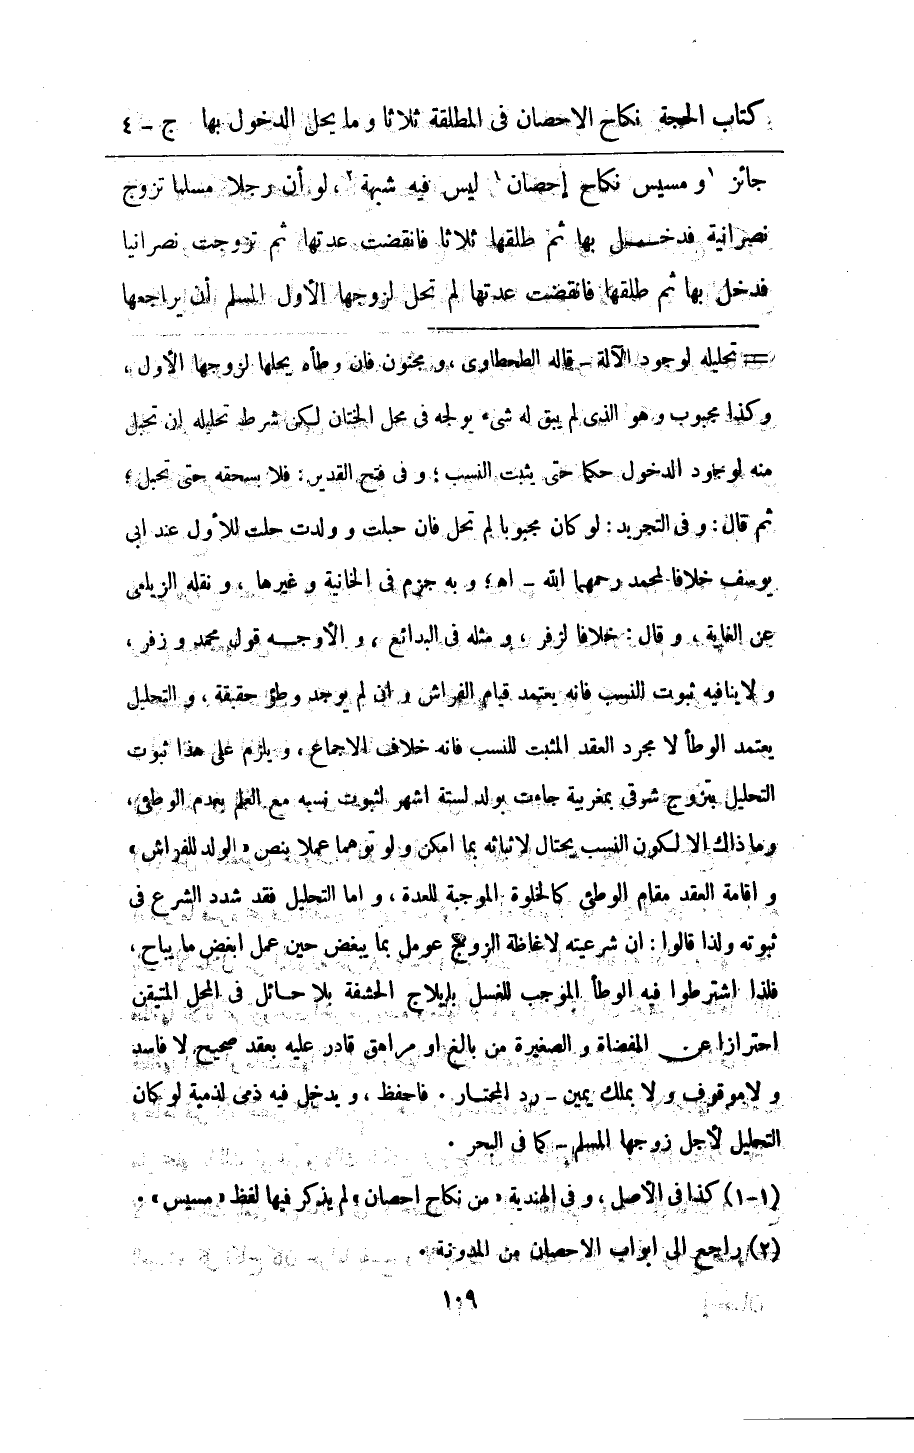 كتاب الحجة نكاح الاحصان فى المطلقة ثلاثا و ما يحل الدخول بها ج - ٤
جائز ١و مسيس نكاح إحصان١ ليس فيه شبهة٢، لو أن رجلا مسلما تزوج
نصرانية فدخل بها ثم طلقها ثلاثا فانقضت عدتها ثم تزوجت نصرانيا
فدخل بها ثم طلقها فانقضت عدتها لم تحل لزوجها الأول المسلم أن يراجعها
= تحليله لوجود الآلة - قاله الطحطاوى، و مجنون فان وطأه يحلها لزوجها الأول،
وكذا مجبوب و هو الذى لم يبق له شىء يولجه فى محل الختان لكن شرط تحليله ان تحبل
منه لوجود الدخول حكما حتى يثبت النسب؛ و فى فتح القدير: فلا يسحقه حتى تحبل؛
ثم قال: و فى التجريد: لو كان مجبوبا لم تحل فان حبلت و ولدت حلت للأول عند ابى
يوسف خلافا لمحمد رحمهما الله - اه؛ و به جزم فى الخانية و غيرها، و نقله الزيلعى
عن الغاية، و قال: خلافا لزفر، و مثله فى البدائع، و الأوجه قول محمد و زفر،
و لا ينافيه ثبوت النسب فانه يعتمد قيام الفراش و ان لم يوجد وطئ حقيقة، و التحليل
يعتمد الوطأ لا مجرد العقد المثبت للنسب فانه خلاف الاجماع، و يلزم على هذا ثبوت
التحليل بتزوج شرقى بمغربية جاءت بولد لستة اشهر لثبوت نسبه مع العلم بعدم الوطئ،
وما ذاك الا لكون النسب يحتال لاثباته بما امكن و لو توهما عملا بنص «الولد للفراش»
و اقامة العقد مقام الوطئ كالخلوة الموجبة للعدة، و اما التحليل فقد شدد الشرع فى
ثبوته ولذا قالوا: ان شرعيته لاغاظة الزوج عومل بما يبغض حين عمل ابغض ما يباح،
فلذا اشترطوا فيه الوطأ الموجب للغسل بإيلاج الحشفة بلا حائل فى المحل المتيقن
احترازا عن المفضاة و الصغيرة من بالغ او مراهق قادر عليه بعقد صحيح لا فاسد
و لا موقوف و لا بملك يمين - رد المحتار. فاحفظ، و يدخل فيه ذمى لذمية لو كان
التحليل لأجل زوجها المسلم - كما فى البحر.
(١-١) كذا فى الأصل، و فى الهندية «من نكاح احصان» لم يذكر فيها لفظ «مسيس».
(٢) راجع الى ابواب الاحصان من المدونة.
١٠٩